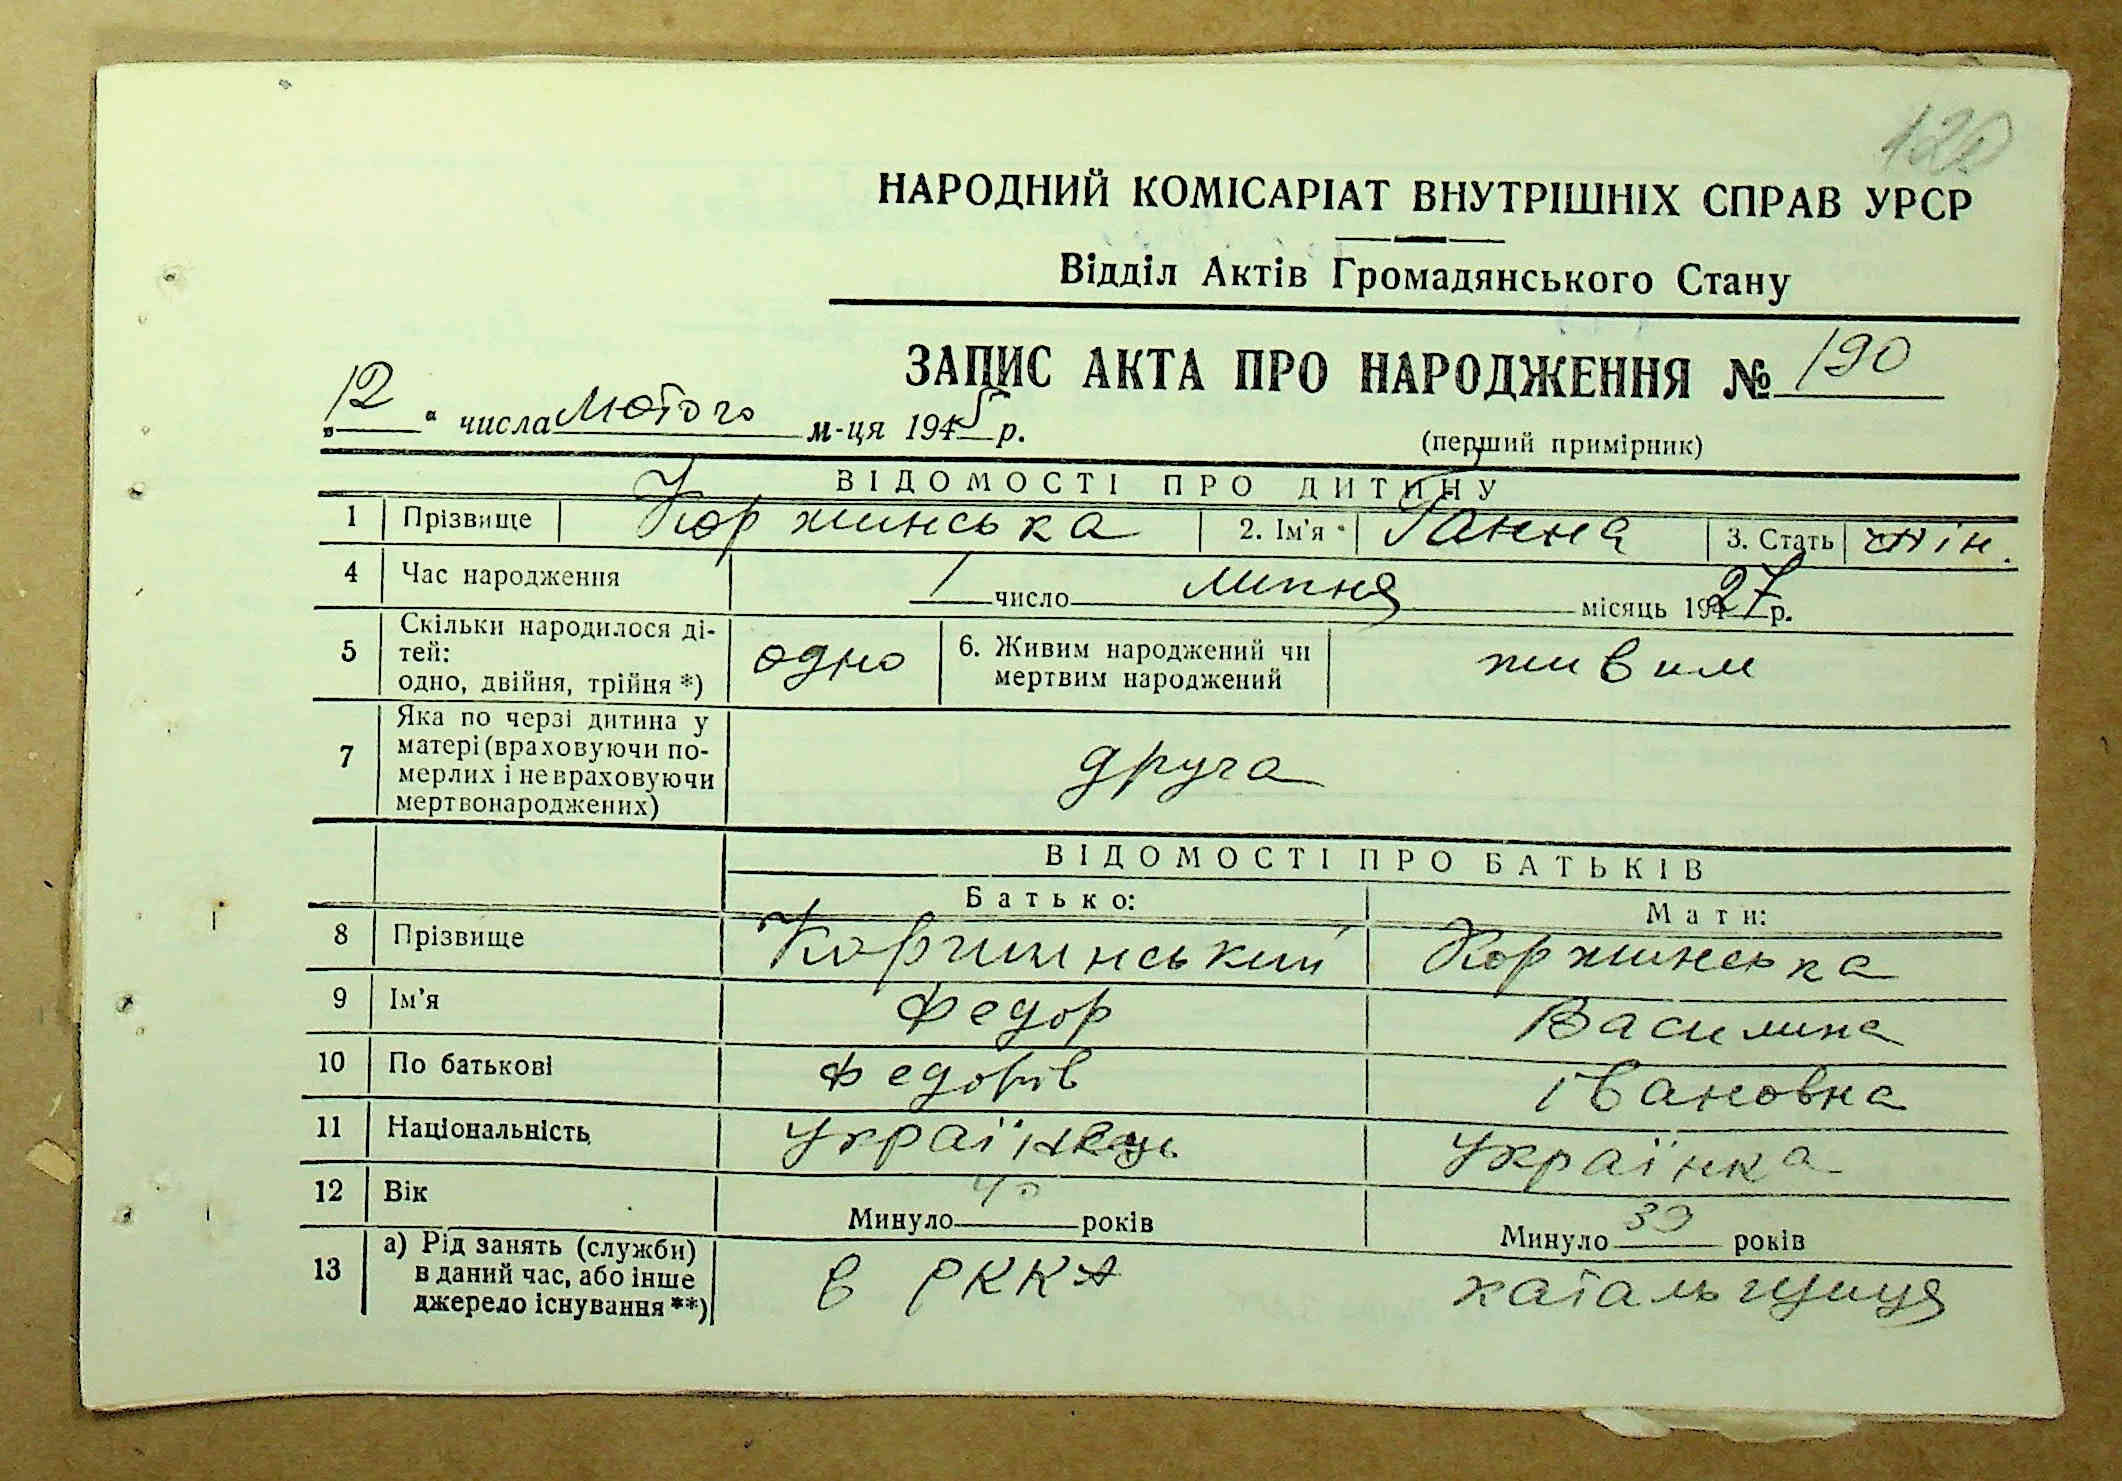 120
НАРОДНИЙ КОМІСАРІАТ ВНУТРІШНІХ СПРАВ УРСР
Відділ Актів Громадянського Стану
ЗАПИС АКТА ПРО НАРОДЖЕННЯ № 190
„12“ числа лютого м-ця 1945 р.
(перший примірник)
ВІДОМОСТІ ПРО ДИТИНУ
1 Прізвище Коржинська 2. Ім'я Ганна 3. Стать жін.
4 Час народження 1 число липня місяць 1927 р.
5 Скільки народилося ді-
тей:
одно, двійня, трійня *) одно 6. Живим народжений чи
мертвим народжений живим
7 Яка по черзі дитина у
матері (враховуючи по-
мерлих і не враховуючи
мертвонароджених) друга
ВІДОМОСТІ ПРО БАТЬКІВ
Батько: Мати:
8 Прізвище Коржинський Коржинська
9 Ім'я Федор Василина
10 По батькові Федорів Івановна
11 Національність Українець Українка
12 Вік Минуло 40 років Минуло 39 років
13 а) Рід занять (служби)
в даний час, або інше
джерело існування **) в РККА катальщиця